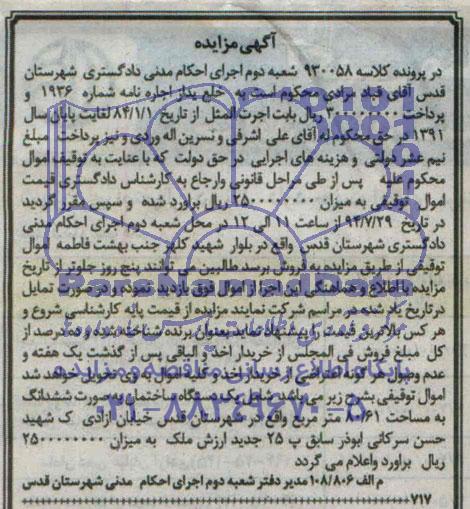 آگهی مزایده
در پرونده کلاسه ۹۳۰۰۵۸ شعبه دوم اجرای احکام مدنی دادگستری شهرستان
قدس آقای قباد مرادی محکوم است به خلع ید از اجاره نامه شماره ۱۹۳۶ و
پرداخت ریال بابت اجرت المثل از تاریخ ۸۴/۱/۱ لغایت پایان سال
۱۳۹۱ در حق محکوم له آقای علی اشرفی و نسرین اله وردی و نیز پرداخت مبلغ
نیم عشر دولتی و هزینه های اجرایی در حق دولت که با عنایت به توقیف اموال
محکوم علیه پس از طی مراحل قانونی وارجاع به کارشناس دادگستری قیمت
اموال توقیفی به میزان ۲۵۰۰۰۰۰۰۰۰ ریال برآورد شده و سپس مقرر گردید
در تاریخ ۹۴/۷/۲۹ از ساعت ۱۱ الی ۱۲ در محل شعبه دوم اجرای احکام مدنی
دادگستری شهرستان قدس واقع در بلوار شهید کلهر جنب بهشت فاطمه اموال
توقیفی از طریق مزایده به فروش برسد طالبین می توانند پنج روز جلوتر از تاریخ
مزایده با اطلاع و هماهنگی این اجرا از اموال فوق بازدید نموده و در صورت تمایل
در تاریخ یاد شده در مراسم شرکت نمایند مزایده از قیمت پایه کارشناسی شروع و
هر کس بالاترین قیمت را پیشنهاد نماید بعنوان برنده شناخته شده و ده درصد از
کل مبلغ فروش فی المجلس از خریدار اخذ و الباقی پس از گذشت یک هفته و
عدم وصول هر گونه اعتراضی از خریدار اخذ و کلیه اموال به وی تحویل خواهد شد
اموال توقیفی بشرح زیر می باشد شامل یک دستگاه ساختمان به صورت ششدانگ
به مساحت ۸۰/۶۱ متر مربع واقع در شهرستان قدس خیابان ازادی ک شهید
حسن سرکانی ابوذر سابق پ ۲۵ جدید ارزش ملک به میزان ۲۵۰۰۰۰۰۰۰۰
ریال برآورد واعلام می گردد
م الف ۱۰۸/۸۰۶ مدیر دفتر شعبه دوم اجرای احکام مدنی شهرستان قدس
۷۱۷
پایگاه اطلاع رسانی مناقصه و مزایده
۰۲۱-۸۸۳۴۹۶۷۰-۵